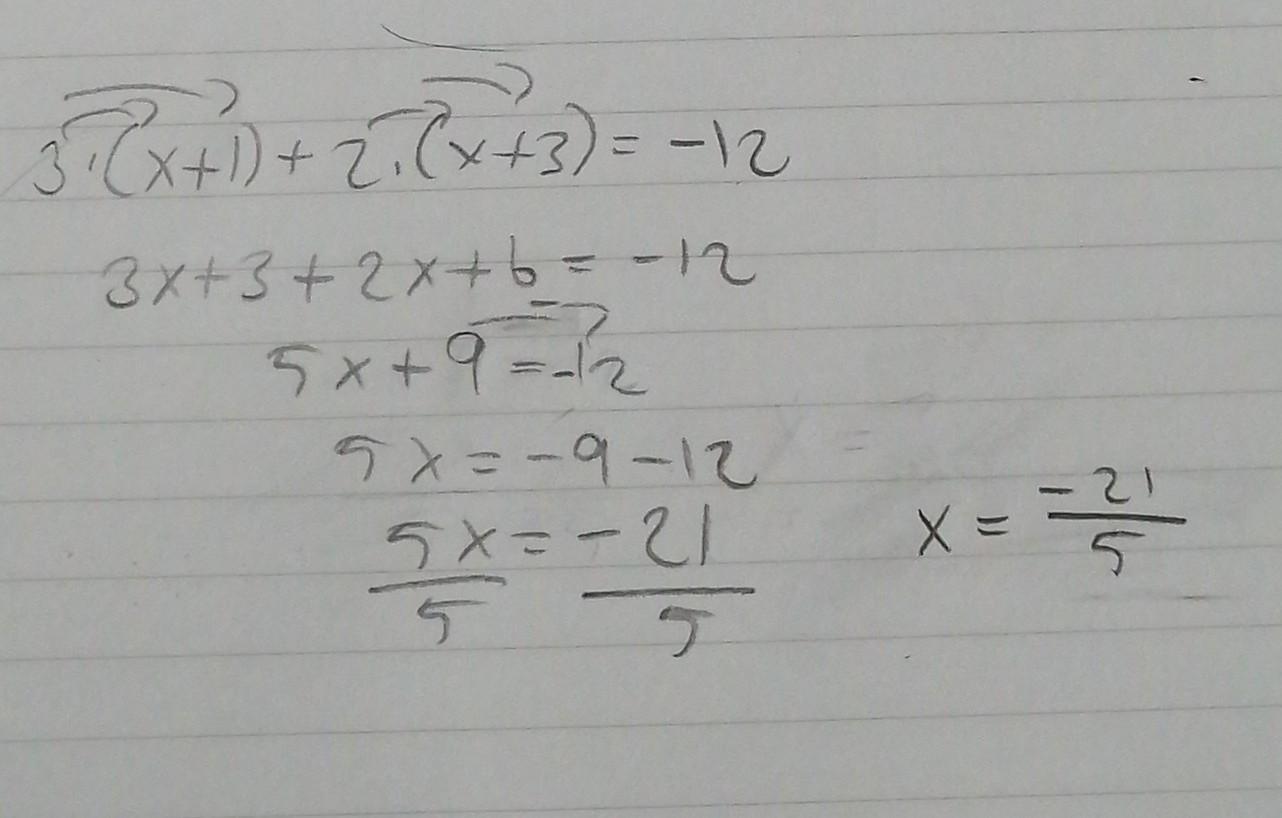 3·(x+1)+2·(x+3)=-12
3x+3+2x+6=-12
5x+9=-12
5x=-9-12
5x/5=-21/5
x=-21/5